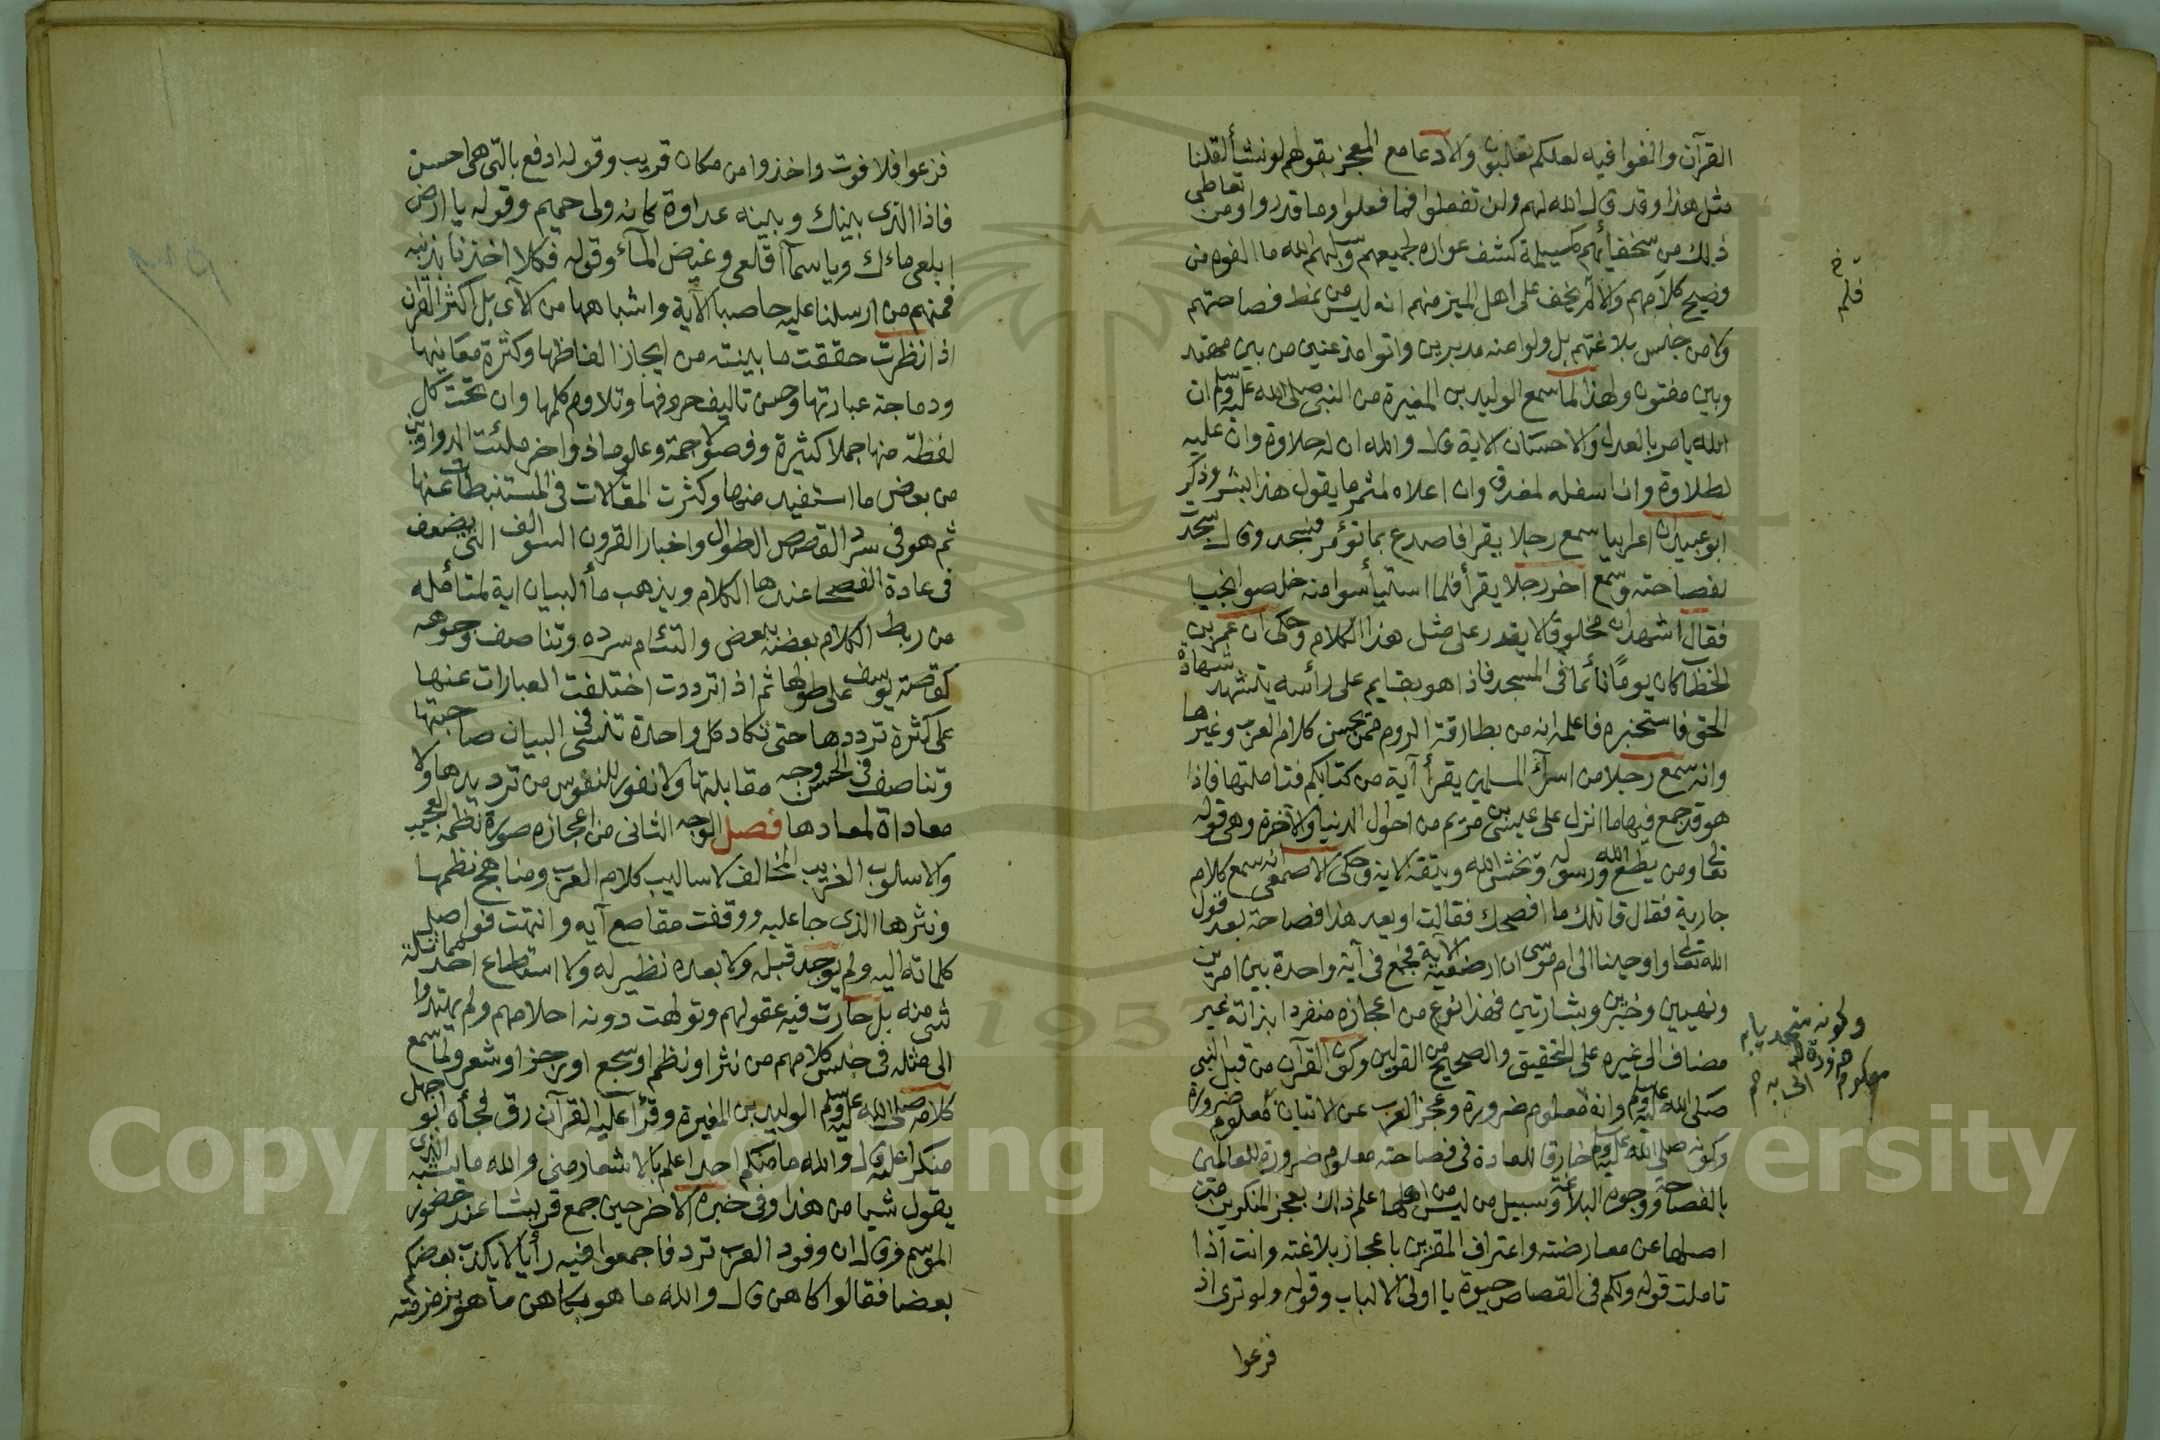 القرآن والغوا فيه لعلكم تغلبون والادعا مع العجز بقولهم لو نشأ لقلنا
مثل هذا وقد قال الله لهم ولن تفعلوا فما فعلوا وما قدروا ومن تعاطى
ذلك من سخفائهم كمسيلمة كشف عواره لجميعهم وسلبهم الله ما الفوه من
فصيح كلامهم والا فلم يخف على اهل الميز منهم انه ليس من نمط فصاحتهم
ولا من جنس بلاغتهم بل ولوا عنه مدبرين واتوا مذعنين من بين مهتد
وبين مفتون ولهذا لما سمع الوليد بن المغيرة من النبي صلى الله عليه وسلم ان
الله يامر بالعدل والاحسان الاية قال والله ان له حلاوة وان عليه
لطلاوة وان اسفله لمغدق وان اعلاه لمثمر ما يقول هذا بشر وذكر
ابو عبيد ان اعرابيا سمع رجلا يقرا فاصدع بما تؤمر فسجد وقال سجدت
لفصاحته وسمع اخر رجلا يقرأ فلما استيأسوا منه خلصوا نجيا
فقال اشهد ان مخلوقا لا يقدر على مثل هذا الكلام وحكى ان عمر بن
الخطاب كان يوما نائما في المسجد فاذا هو بقايم على رأسه يتشهد شهادة
الحق فاستخبره فاعلمه انه من بطارقة الروم ممن يحسن كلام العرب وغيرها
وانه سمع رجلا من اسرآء المسلمين يقرأ آية من كتابكم فتاملتها فاذا
هو قد جمع فيها ما انزل على عيسى بن مريم من احوال الدنيا والآخرة وهي قوله
تعالى ومن يطع الله ورسوله ويخش الله ويتقه الاية وحكى الاصمعي انه سمع كلام
جارية فقال قاتلك ما افصحك فقالت او يعد هذا فصاحة بعد قول
الله تعالى واوحينا الى ام موسى ان ارضعيه الآية فجمع في آية واحدة بين امرين
ونهيين وخبرين وبشارتين فهذا نوع من اعجازه منفردا بذاته غير
مضاف الى غيره على التحقيق والصحيح من القولين وكون القرآن من قبل النبي
صلى الله عليه وسلم وانه معلوم ضرورة وعجز العرب عن الاتيان به معلوم ضرورة
وكونه صلى الله عليه وسلم خارقا للعادة في فصاحته معلوم ضرورة للعالمين
بالفصاحة ووجوه البلاغة وسبيل من ليس من اهلها علم ذلك بعجز المنكرين من
اهلها عن معارضته واعتراف المقرين باعجاز بلاغته وانت اذا
تاملت قوله ولكم في القصاص حيوة يا اولى الالباب وقوله ولو ترى اذ
فزعوا
فلم
وكونه متحديا به
معلوم ضرورة
فزعوا فلا فوت واخذوا من مكان قريب وقوله ادفع بالتي هي احسن
فاذا الذى بينك وبينه عداوة كانه ولى حميم وقوله يا ارض
ابلعى ماءك ويا سمآ اقلعى وغيض المآء وقوله فكلا اخذنا بذنبه
فمنهم من ارسلنا عليه حاصبا الآية واشباهها من الآى بل اكثر القرآن
اذا نظرت حققت ما بينته من ايجاز الفاظها وكثرة معانيها
ودماجة عبارتها وحسن تاليف حروفها وتلاوم كلمها وان تحت كل
لفظة منها جملا كثيرة وفصولا جمة وعلوما زواخر ملئت الدواوين
من بعض ما استفيد منها وكثرت المقالات في المستنبطات عنها
ثم هو في سرد القصص الطوال واخبار القرون السوالف التي يضعف
في عادة الفصحا عندها الكلام ويذهب مأ البيان اية لمتأمله
من ربط الكلام بعضه ببعض والتئام سرده وتناصف وجوهه
كقصة يوسف على طولها ثم اذا ترددت اختلفت العبارات عنها
على كثرة ترددها حتى تكاد كل واحدة تنسى في البيان صاحبتها
وتناصف في الحسن وجه مقابلتها ولا نفور للنفوس من ترديدها ولا
معاداة لمعادها فصل الوجه الثانى من اعجازه صورة نظمه العجيب
والاسلوب الغريب المخالف لاساليب كلام العرب ومناهج نظمها
ونثرها الذى جا عليه ووقفت مقاطع آيه وانتهت فواصل
كلماته اليه ولم يوجد قبله ولا بعده نظير له ولا استطاع احد مماثلة
شى منه بل حارت فيه عقولهم وتولهت دونه احلامهم ولم يهتدوا
الى مثله في جنس كلامهم من نثر او نظم او سجع او رجز او شعر ولما سمع
كلامه صلى الله عليه وسلم الوليد بن المغيرة وقرأ عليه القرآن رق فجأه ابو جهل
منكرا عليه قال والله ما منكم احد اعلم بالاشعار منى والله ما يشبه الذى
يقول شيا من هذا وفى خبره الاخر حين جمع قريشا عند حضور
الموسم فقال ان وفود العرب ترد فاجمعوا فيه رأيا لا يكذب بعضكم
بعضا فقالوا كاهن قال والله ما هو بكاهن ما هو بزمزمته
Copyright © King Saud University
1957